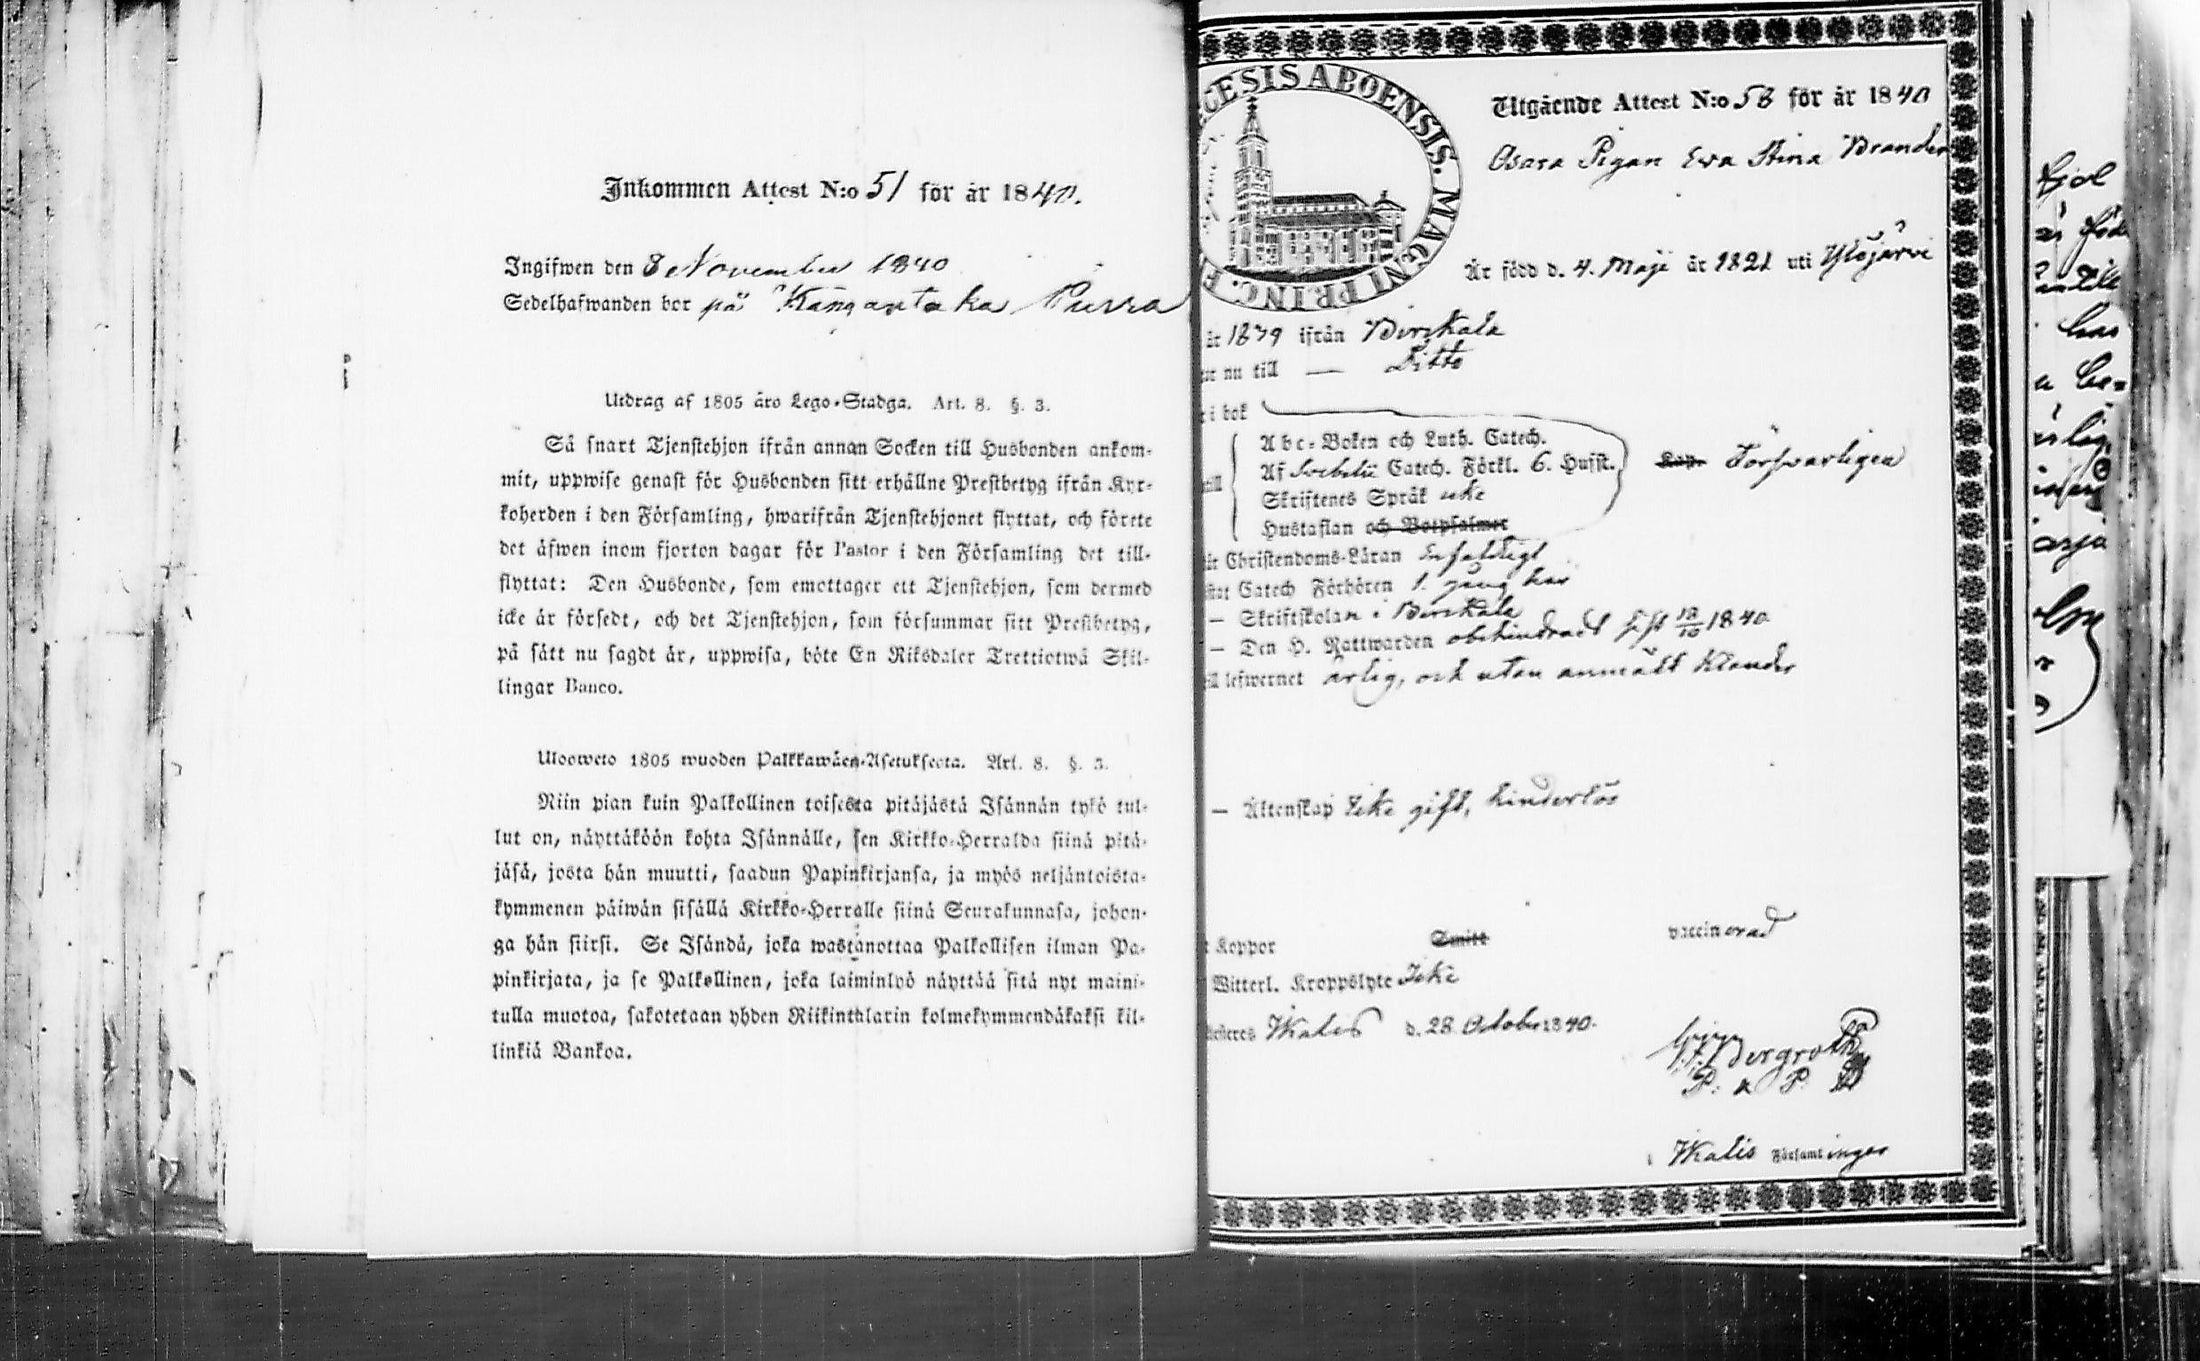 Inkommen Attest N:o 51 för år 1840.
Ingifwen den 8 November 1840
Sedelhafwanden bor på Kangantaka Purra
Utdrag af 1805 års Lego-Stadga. Art. 8. §. 3.
Så snart Tjenstehjon ifrån annan Socken till Husbonden ankom-
mit, uppwise genast för Husbonden sitt erhållne Prestbetyg ifrån Kyr-
koherden i den Församling, hwarifrån Tjenstehjonet flyttat, och förete
det äfwen inom fjorton dagar för Pastor i den Församling det till-
flyttat: Den Husbonde, som emottager ett Tjenstehjon, som dermed
icke är försedt, och det Tjenstehjon, som försummar sitt Prestbetyg,
på sätt nu sagdt är, uppwisa, böte En Riksdaler Trettiotwå Skil-
lingar Banco.
Ulosweto 1805 wuoden Palkkawäen-Asetuksesta. Art. 8. §. 3.
Niin pian kuin Palkollinen toisesta pitäjästä Isännän tykö tul-
lut on, näyttäköön kohta Isännälle, sen Kirkko-Herralda siinä pitä-
jäsä, josta hän muutti, saadun Papinkirjansa, ja myös neljäntoista-
kymmenen päiwän sisällä Kirkko-Herralle siinä Seurakunnasa, johon-
ga hän siirsi. Se Isändä, joka wastanottaa Palkollisen ilman Pa-
pinkirjata, ja se Palkollinen, joka laiminlyö näyttää sitä nyt maini-
tulla muotoa, sakotetaan yhden Riikinthlarin kolmekymmendäkaksi kil-
linkiä Bankoa.
GESIS ABOENSIS. MAGNI PRINC. F
Utgående Attest N:o 58 för år 1840
Pigan Ewa Stina Brander
Är född d. 4. Maji år 1821 uti Ylöjärvi
år 1839 ifrån Birkkala
nu till — Ditto
i bok
Abc-Boken och Luth. Catech.
Af Svebelii Catech. Förkl. 6. Husst. Försvarligen
Skriftenes Språk icke
Hustaflan och Botpsalmer
Christendoms-Läran Enfaldigt
Catech Förhören 1. gång här
— Skriftskolan i Birkkala
— Den H. Nattwarden obehindradt sist 18/10 1840
lefwernet ärlig, och utan anmält klander
— Äktenskap Icke gift, hinderlös
Koppor Smitt vaccinerad
Witterl. Kroppslyte Icke
Ikalis d. 28 October 1840.
Bergroth
P.
i Ikalis Församlingar